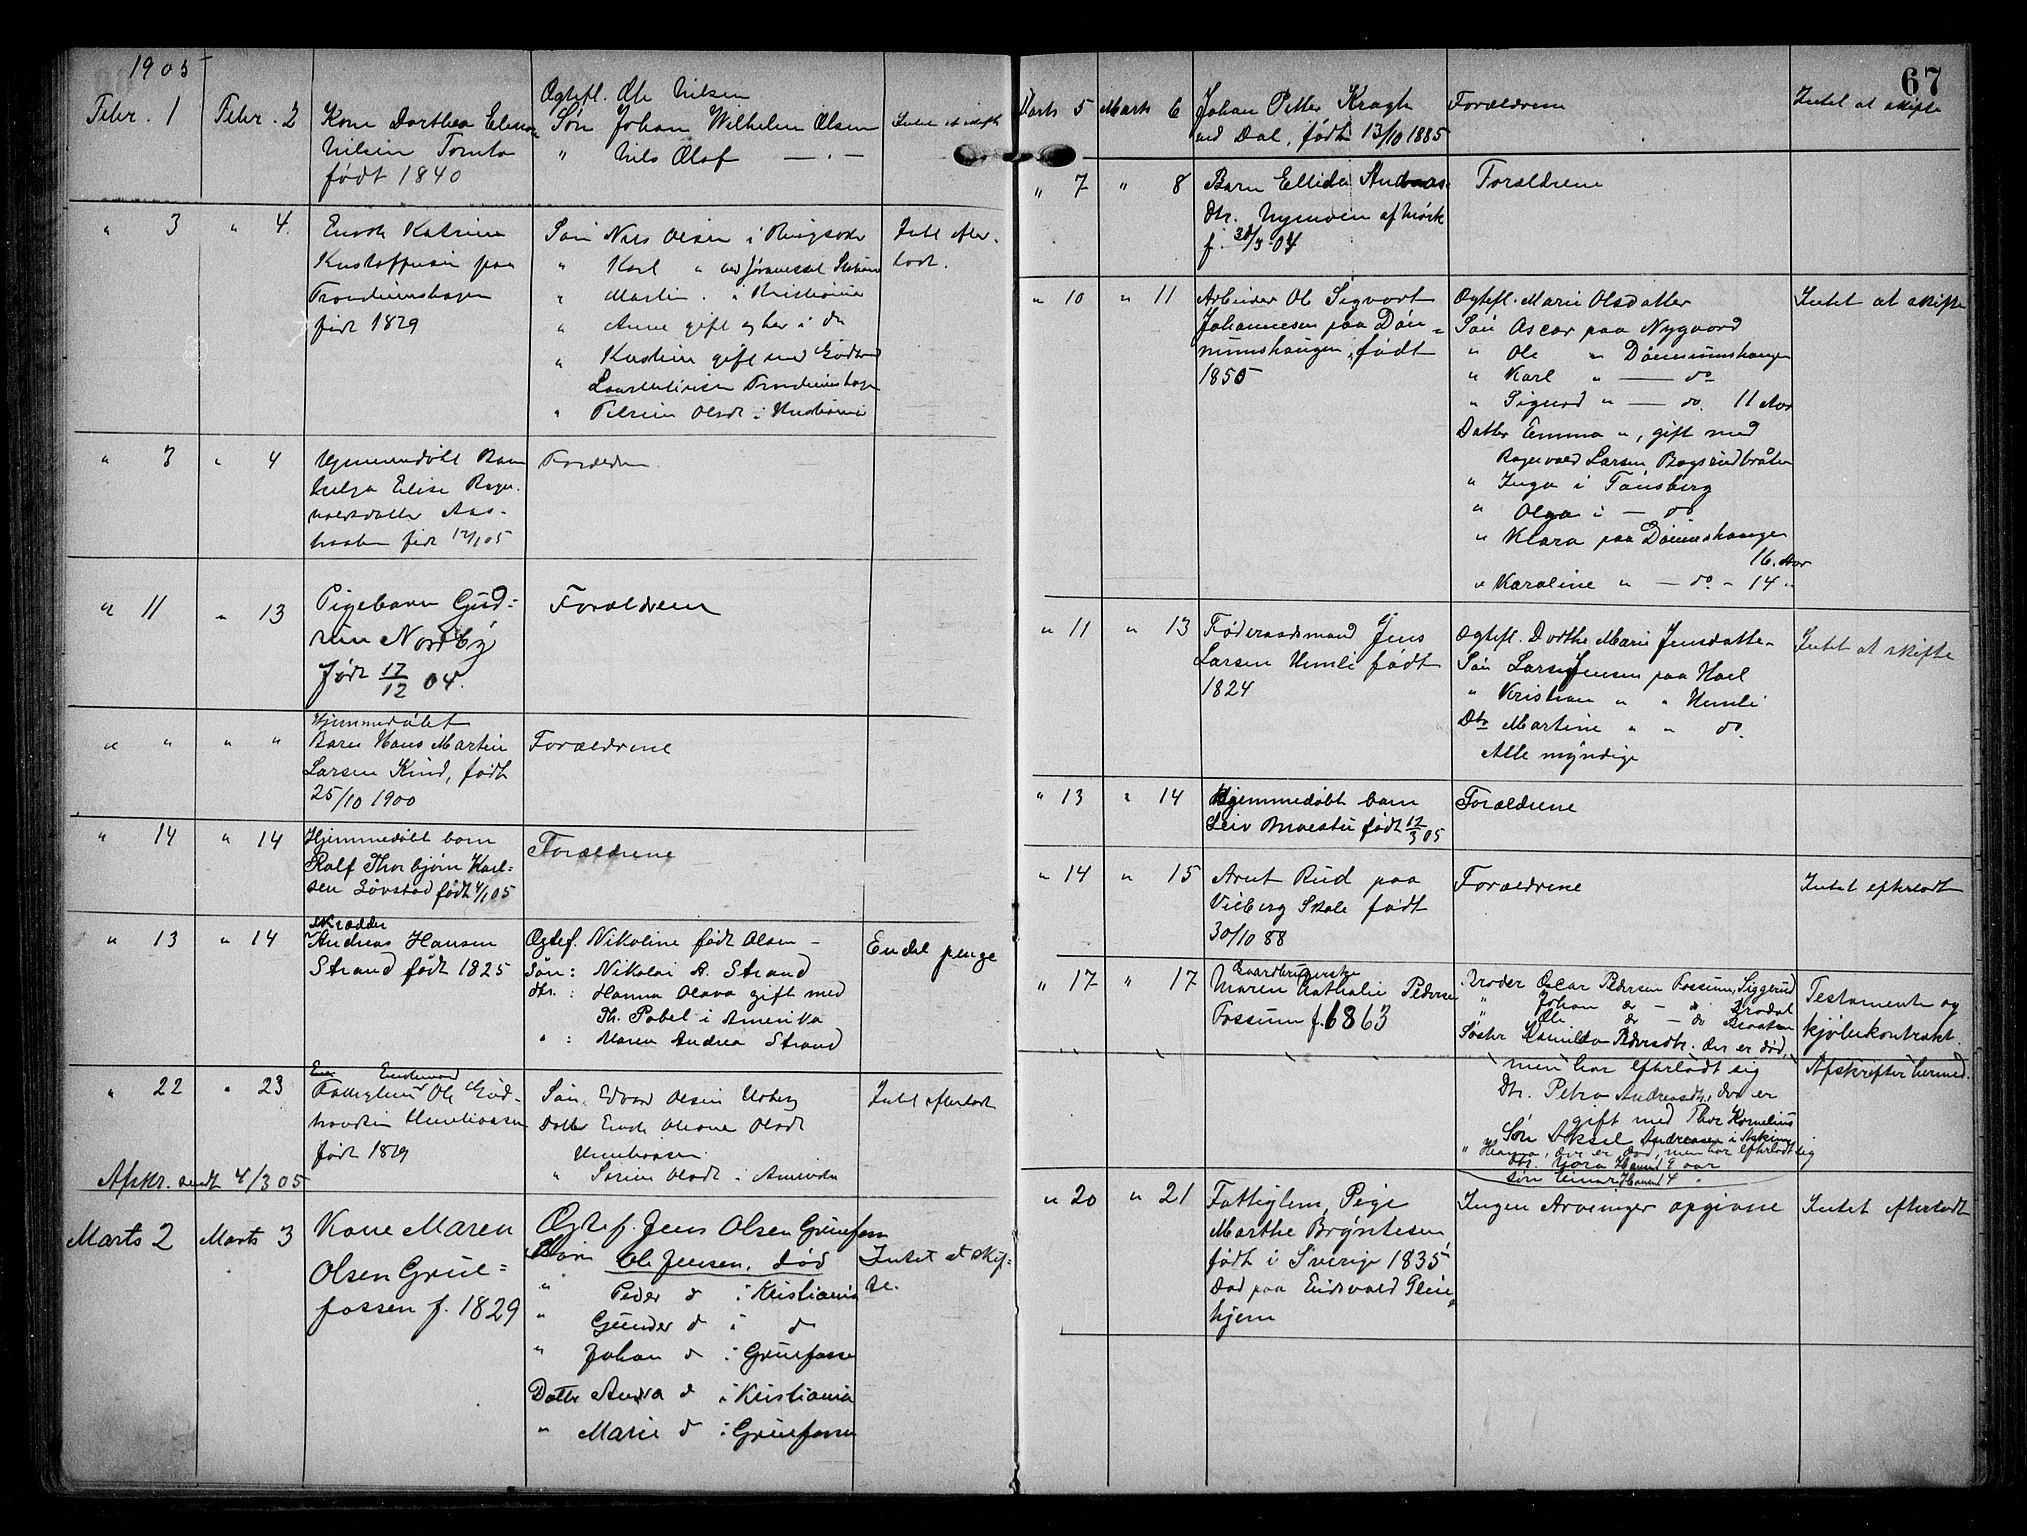 1905
Febr. 1 Febr. 2 Kone Dorthea
Nilsen
født 1840
Ogtefl. Ole Nilsen
Søn Johan Wilhelm Olsen
" Nils Olaf — . —
" 3 " 4. Enke Katrine
født 1829
Søn Nils Olsen i
" Karl "
" Martin . i Kristiania
" Anne gift og bor i do
" gift med
" Olsdt i Kristiania
Intet efter-
ladt.
" 3 " 4 Hjemmedøbt Barn
Helga Elise Ragn-
valdsdatter Aas-
født 12/1 05
Forældrene
" 11 " 13 Pigebarn Gud-
run Nordby
født 17/12 04.
Forældrene
" " " " Hjemmedøbt
Barn Hans Martin
Larsen Kind, født
25/10 1900
Forældrene
" 14 " 14 Hjemmedøbt barn
Ralf Thorbjørn Karl-
sen Løvstad født 4/1 05
Forældrene
" 13 " 14 Skrædder
Andreas Hansen
Strand født 1825
Ogtef. Nikoline født Olsen -
Søn: Nikolai A. Strand
dtr. : Hanna Olava gift med
Th. Pabel i Amerika
" : Maren Andrea Strand
Endel penge
" 22 " 23 Enkemand
Fattiglem Ole Gud-
født 1829
Søn Edvard Olsen
Datter Olsdt
" Olsdt i Amerika
Intet efterladt
Afskr. sendt 4/3 05
Marts 2 Marts 3 Kone Maren
Olsen Grue-
fossen f. 1829
Ogtef. Jens Olsen Gruefossen
Søn Ole Jensen, død
" Peder d i Kristiania
" Gunder d i d
" Johan d i Gruefosse
Datter Andra d i Kristiania
" Marie d i Gruefossen
Intet at skif-
te.
67
Marts 5 Marts 6 Johan Petter Kragh
ved Dal, født 13/10 1885
Forældrene
Intet at skifte
" 7 " 8 Barn Ellida Andreas-
dtr. Nymoen af Mørk
f. 30/3 04
Forældrene
" 10 " 11 Arbeider Ole Sigvart
Johannesen paa Døn-
numshaugen, født
1855
Ogtefl. Marie Olsdatter
Søn Oscar paa Nygaard
" Ole " Dønnumshaugen
" Karl " — do
" Sigurd " — do. 11 Aar
Datter Emma ", gift med
Ragnvald Larsen
" Inga i Tønsberg
" Olga i — do
" Klara paa Dønnumshaugen
16. Aar
" Karoline " — do - 14 "
Intet at skifte
" 11 " 13 Føderaadsmand Jens
Larsen Hemli født
1824
Ogtefl. Dorthe Marie Jensdatter
Søn Lars Jensen paa Hoel
" Kristian " " Hemli
Dtr Martine " " do.
Alle myndige
Intet at skifte
" 13 " 14 Hjemmedøbt barn
Leiv født 12/3 05
Forældrene
" 14 " 15 Arnt Rud paa
Vilberg Skole født
30/10 88
Forældrene
Intet efterladt
" 17 " 17 Gaardbrugerske
Maren Kathalie Pedersen
Fossum f. 1863
Broder Oscar Pedersen Fossum, Siggerud
" Johan do — do
" Ole do — do Braaten
Søster Kamilla Pedersdtr. der er død,
men har efterladt sig
Dtr. Petra Andreasdtr. der er
gift med Thor Kornelius
Søn Aksel Andreasen i Askim
" Hanna, der er død, men har efterladt sig
Dtr. Nora Hansen 9 aar
Søn Einar Hansen 4 "
Testamente og
kjøbekontrakt.
Afskrifter hermed.
" 20 " 21 Fattiglem, Pige
Marthe Bryntesen,
født i Sverige 1835
Død paa Eidsvold Pleie-
hjem
Ingen Arvinger opgivne
Intet efterladt